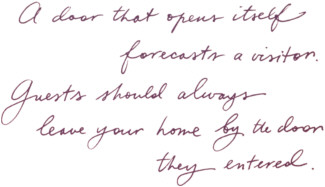 A door that opens itself
forecasts a visitor.
Guests should always
leave your home by the door
they entered.